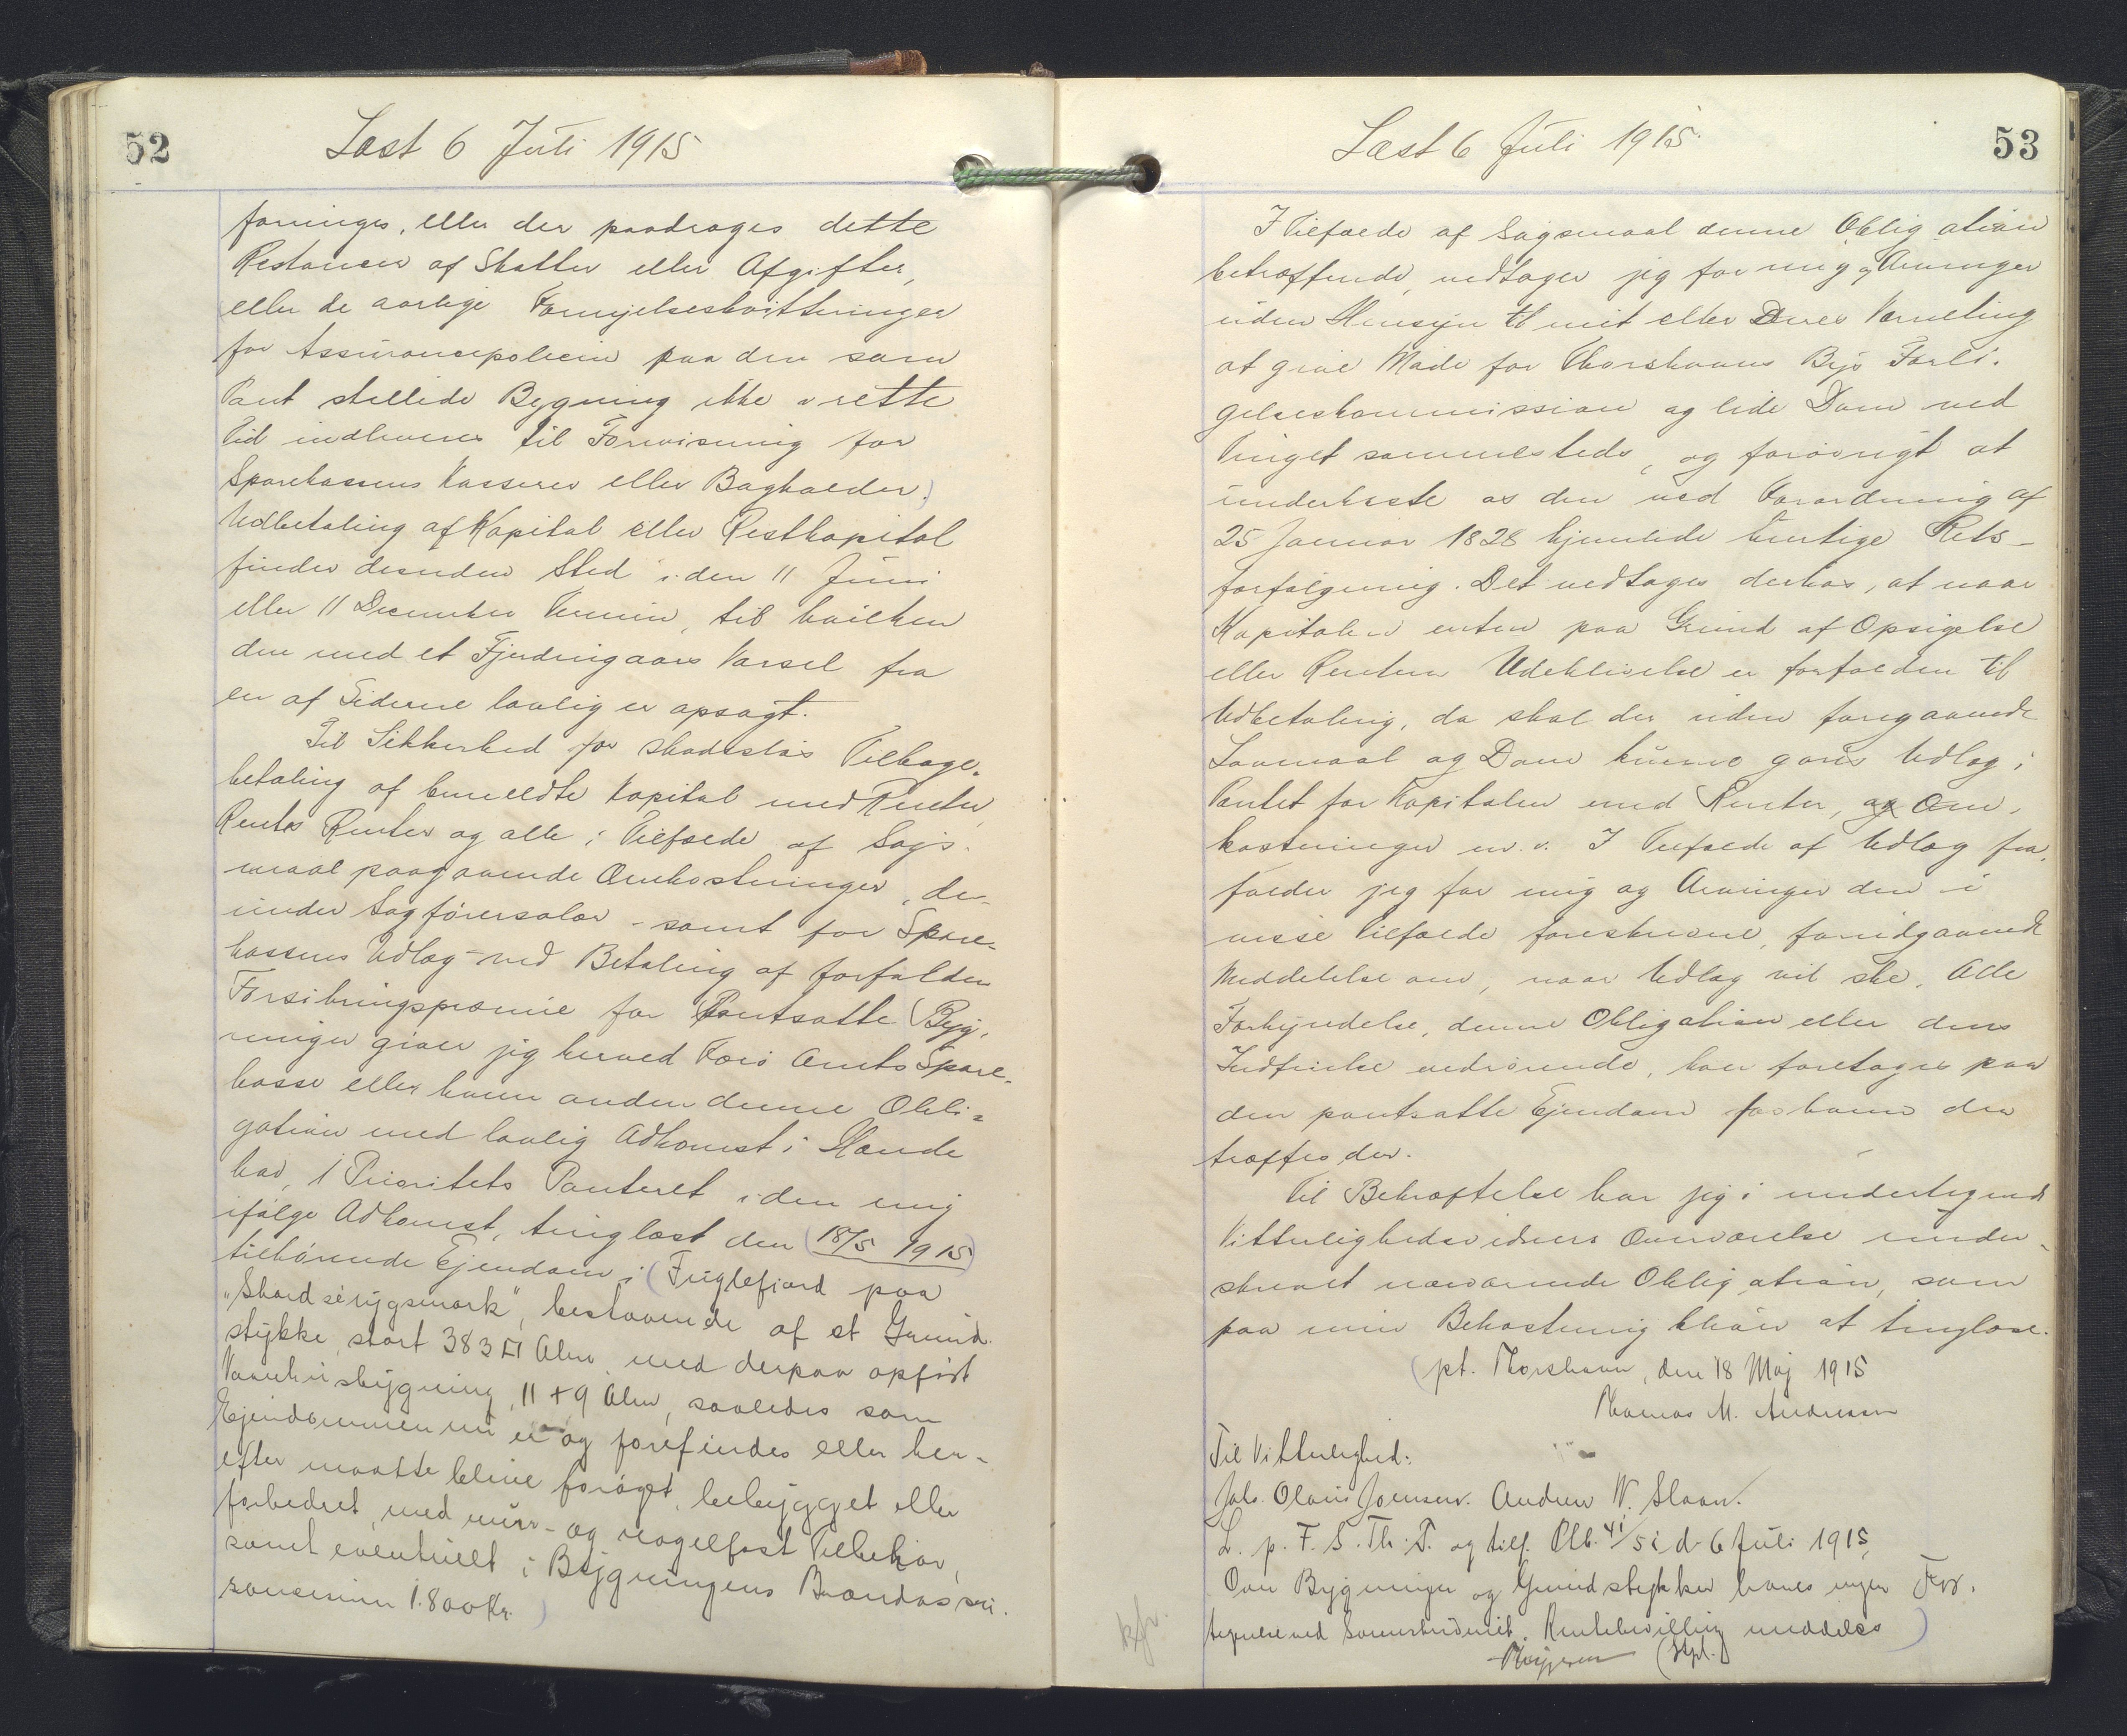 52
Læst 6 Juli 1915
forringes, eller der paadrages dette
Restancer af Skatter eller Afgifter,
eller de aarlige Fornyelseskvitteringer
for Assurancepolicen paa den som
Pant stillede Bygning ikke i rette
Tid indleveres til Forevisning for
Sparekassens Kasserer eller Bogholder.
Udbetaling af Kapital eller Restkapital
finder desuden Sted i den 11 Juni
eller 11 December Termin, til hvilken
den med et Fjerdingaars Varsel fra
en af Siderne lovlig er opsagt.
Til Sikkerhed for skadesløs Tilbage-
betaling af bemeldte Kapital med Renter,
Rentes Renter og alle i Tilfælde af Søgs-
maal paagaaende Omkostninger, der-
under Sagførersalær - samt for Spare-
kassens Udlæg - ved Betaling af forfalden
Forsikringspræmie for Pantsatte Byg-
ninger giver jeg herved Færø Amts Spare-
kasse eller hvem anden denne Obli-
gation med lovlig Adkomst i Hænde
har, 1 Prioritets Panteret i den mig
ifølge Adkomst, tinglæst den (18/5 1915)
tilhørende Ejendom i (Fuglefjord paa
bestaaende af et Grund-
stykke, stort 383 □ Alen med derpaa opført
Vaaningsbygning, 11 + 9 Alen, saaledes som
Ejendommen nu er og forefindes eller her-
efter maatte blive forøget, bebygget eller
forbedret, med mur- og nagelfast Tilbehør,
samt eventuelt i Bygningens Brandassu-
rancesum 1.800 Kr.)
53
Læst 6 Juli 1915
I Tilfælde af Søgsmaal denne Obligation
betræffende, vedtager jeg for mig og Arvinger
uden Hensyn til mit eller Deres Værneting
at give Møde for Thorshavns Bys Forli-
gelseskommission og lide Dom ved
Tinget sammesteds, og forøvrigt at
underkaste os den ved Forordning af
25 Januar 1828 hjemlede hurtige Rets-
forfølgning. Det vedtages derhos, at naar
Kapitalen enten paa Grund af Opsigelse
eller Rentens Udeblivelse er forfalden til
Udbetaling, da skal der uden foregaaende
Lovmaal og Dom kunne gøres Udlæg i
Pantet for Kapitalen med Renter, og Om-
kostninger m.v. I Tilfælde af Udlæg fra-
falder jeg for mig og Arvinger den i
visse Tilfælde foreskrevne, forudgaaende
Meddelelse om, naar Udlæg vil ske. Alle
Forkyndelse, denne Obligation eller dens
Indfrielse vedrørende, kan foretages paa
den pantsatte Ejendom for hvem der
træffes der.
Til Bekræftelse har jeg i undertegnede
Vitterlighedsvidners Overværelse under-
skrevet nærværende Obligation, som
paa min Bekostning bliver at tinglæse.
(pt. Thorshavn, den 18 Maj 1915
Thomas M. Andreasen
Til Vitterlighed:
Johs. Olavus Joensen. Andrew W. Sloan.
L. p. F. S. Th. T. og tilf. Plb. i d. 6 Juli 1915,
Over Bygninger og Grundstykker haves ingen For-
tegnelse ved Sorenskriveriet. Rentebevilling meddeles)
(stpl.)
kfr.